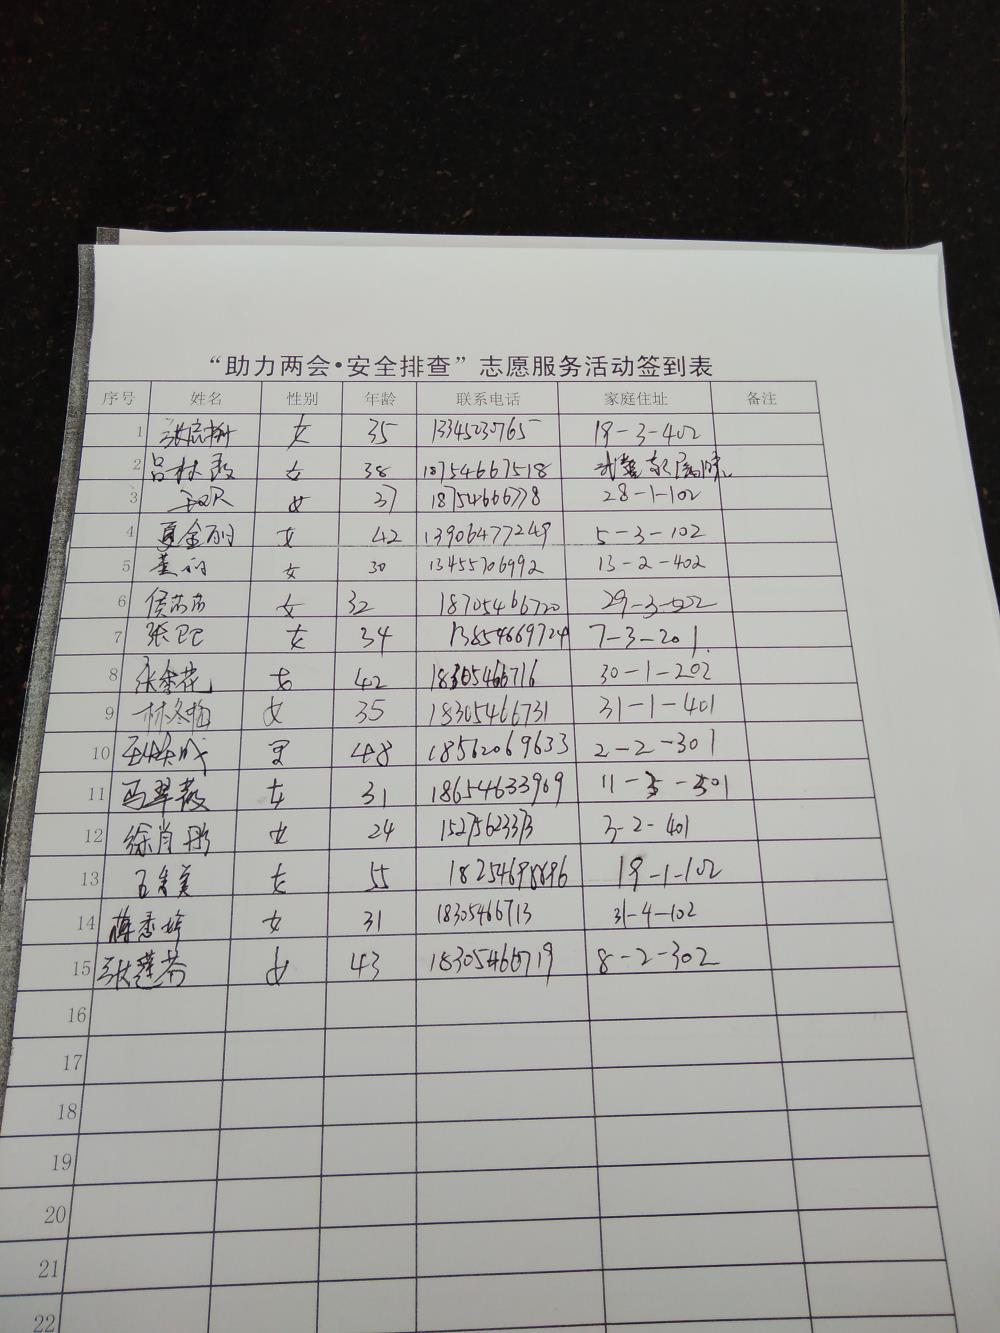 “助力两会•安全排查”志愿服务活动签到表
序号 姓名 性别 年龄 联系电话 家庭住址 备注
1 女 35 13345030765 19-3-402
2 吕林霞 女 38 18754667518
3 女 37 18754666778 28-1-102
4 夏金丽 女 42 13906477249 5-3-102
5 董丽 女 30 13455706992 13-2-402
6 侯芳芳 女 32 18705466720 29-3-502
7 张巴巴 女 34 13854669724 7-3-201
8 张秀花 女 42 18305466716 30-1-202
9 林冬梅 女 35 18305466731 31-1-401
10 男 48 18562069633 2-2-301
11 马翠霞 女 31 18654633969 11-3-301
12 徐肖彤 女 24 15275623373 3-2-401
13 女 55 18254698896 19-1-102
14 蒋香婷 女 31 18305466713 31-4-102
15 张莲芬 女 43 18305466719 8-2-302
16
17
18
19
20
21
22